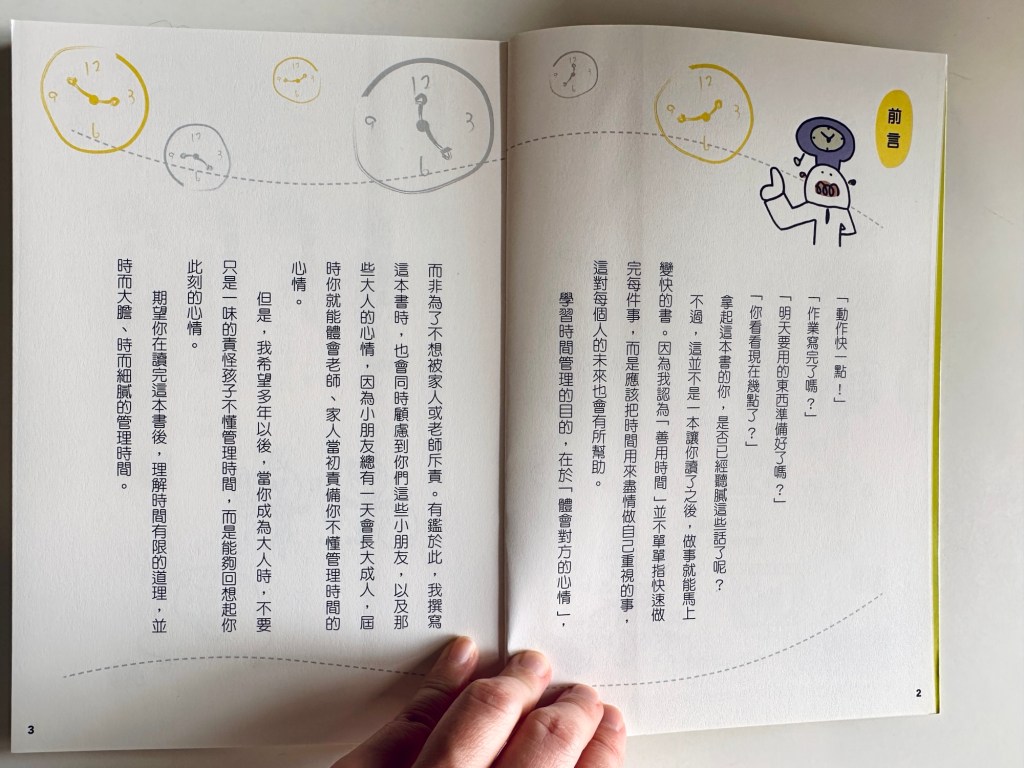 前言
「動作快一點！」
「作業寫完了嗎？」
「明天要用的東西準備好了嗎？」
「你看看現在幾點了？」
拿起這本書的你，是否已經聽膩這些話了呢？
不過，這並不是一本讓你讀了之後，做事就能馬上
變快的書。因為我認為「善用時間」並不單單指快速做
完每件事，而是應該把時間用來盡情做自己重視的事，
這對每個人的未來也會有所幫助。
學習時間管理的目的，在於「體會對方的心情」，
2
而非為了不想被家人或老師斥責。有鑑於此，我撰寫
這本書時，也會同時顧慮到你們這些小朋友，以及那
些大人的心情，因為小朋友總有一天會長大成人，屆
時你就能體會老師、家人當初責備你不懂管理時間的
心情。
但是，我希望多年以後，當你成為大人時，不要
只是一味的責怪孩子不懂管理時間，而是能夠回想起你
此刻的心情。
期望你在讀完這本書後，理解時間有限的道理，並
時而大膽、時而細膩的管理時間。
3
12
9
3
6
12
9
3
6